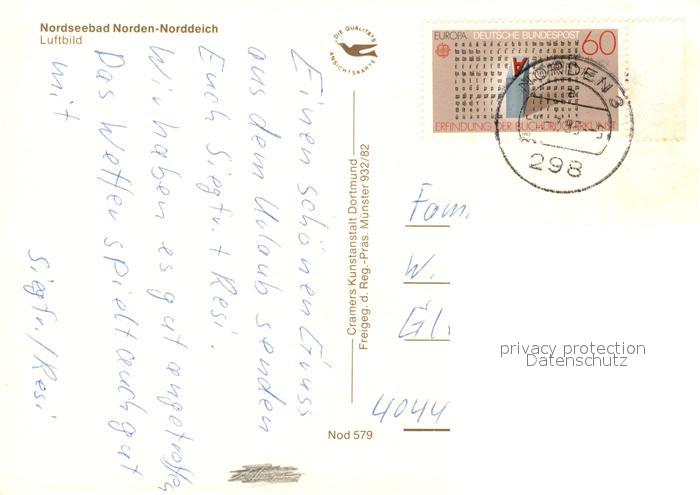 Nordseebad Norden-Norddeich
Luftbild
DIE QUALITÄTS
ANSICHTSKARTE
EUROPA DEUTSCHE BUNDESPOST 60
ERFINDUNG DER BUCHDRUCKERKUNST
NORDEN 3
298
Einen schönen Gruss
aus dem Urlaub senden
Euch Siegfr. + Resi.
Wir haben es gut angetroffen
Das Wetter spielt auch gut
mit
Siegfr. / Resi
Cramers Kunstanstalt Dortmund
Freigeg. d. Reg.-Präs. Münster 932/82
Fam.
W.
Gl
4044
Nod 579
privacy protection
Datenschutz